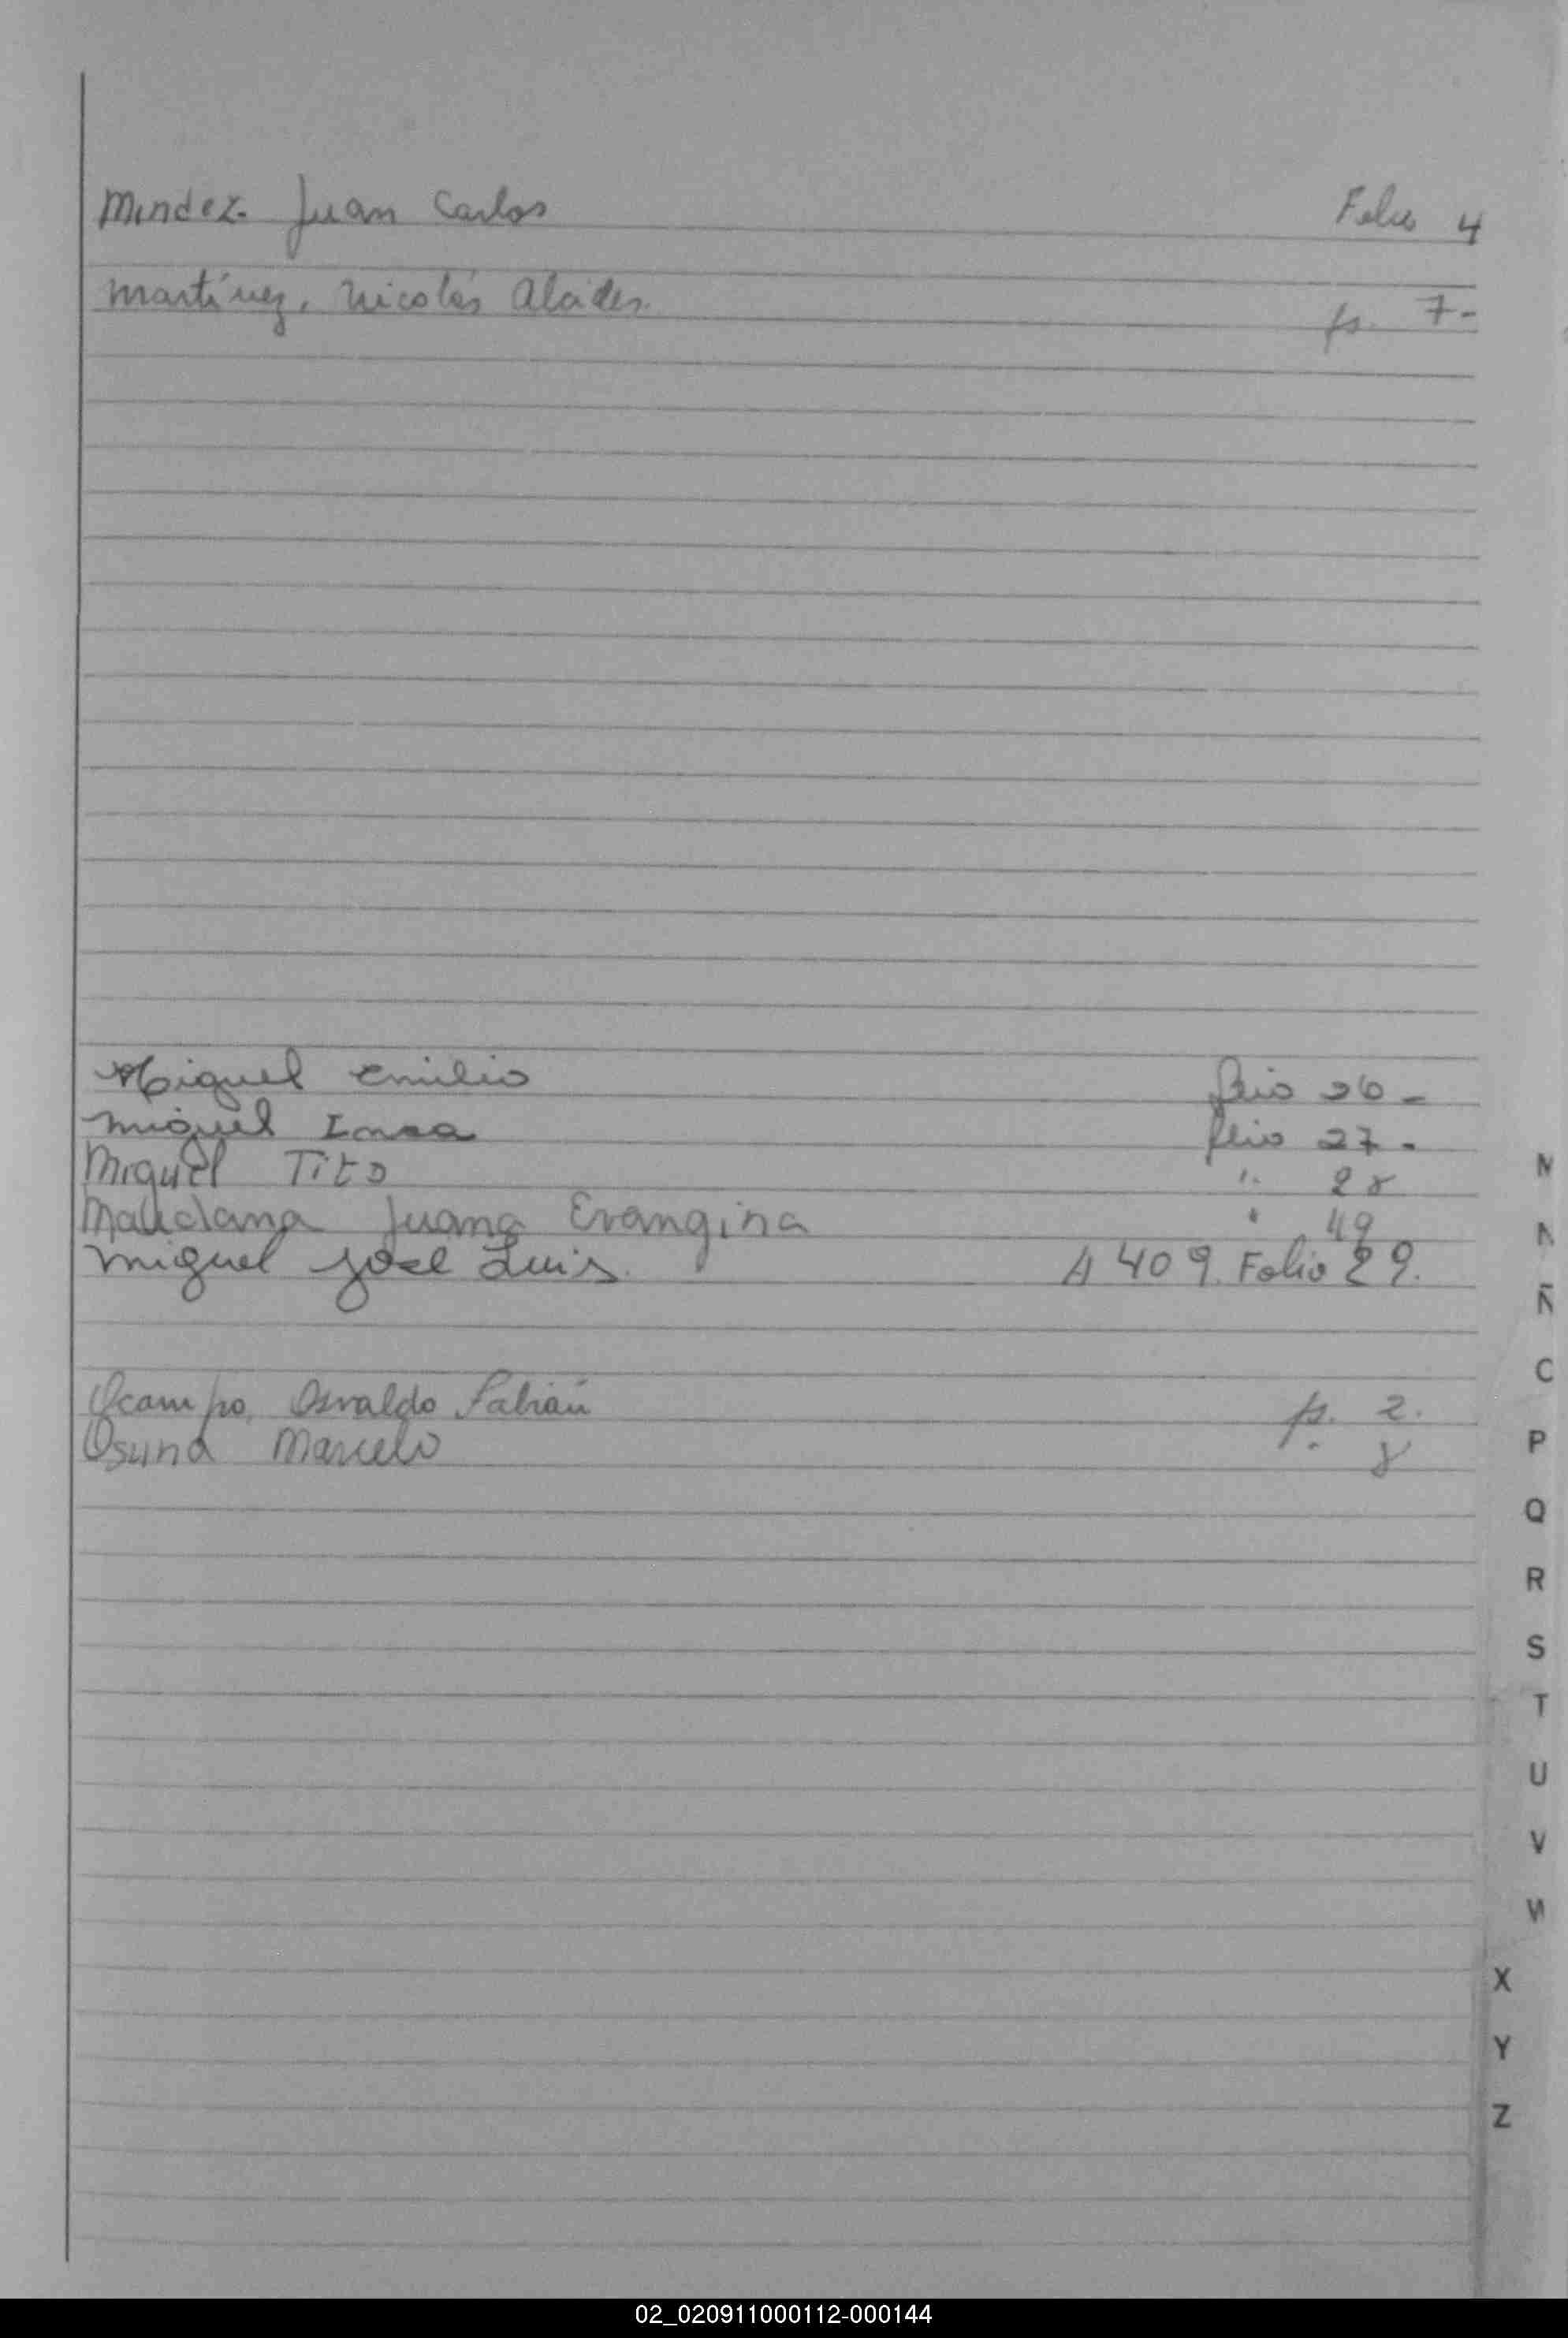 Mendez. Juan Carlos Folio 4
Martínez, Nicolás Alcides. fs. 7-
Miguel Emilio folio 26-
Miguel folio 27-
Miguel Tito " 28
Maldana Juana Evangina " 49
Miguel José Luis. A 409. Folio 29.
Ocampo, Osvaldo Fabián fs. 2.
Osuna Marcelo " 8
M
N
Ñ
O
P
Q
R
S
T
U
V
W
X
Y
Z
02_020911000112-000144